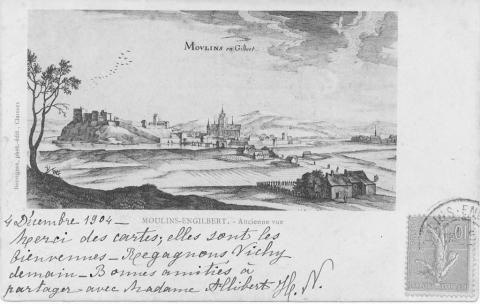 MOVLINS en Gilbert.
MOULINS-ENGILBERT. - Ancienne vue
4 Décembre 1904 -
Merci des cartes; elles sont les
bienvenues - Regagnons Vichy
demain - Bonnes amitiés à
partager avec Madame Allibert H. N.
phot.-édit.
10